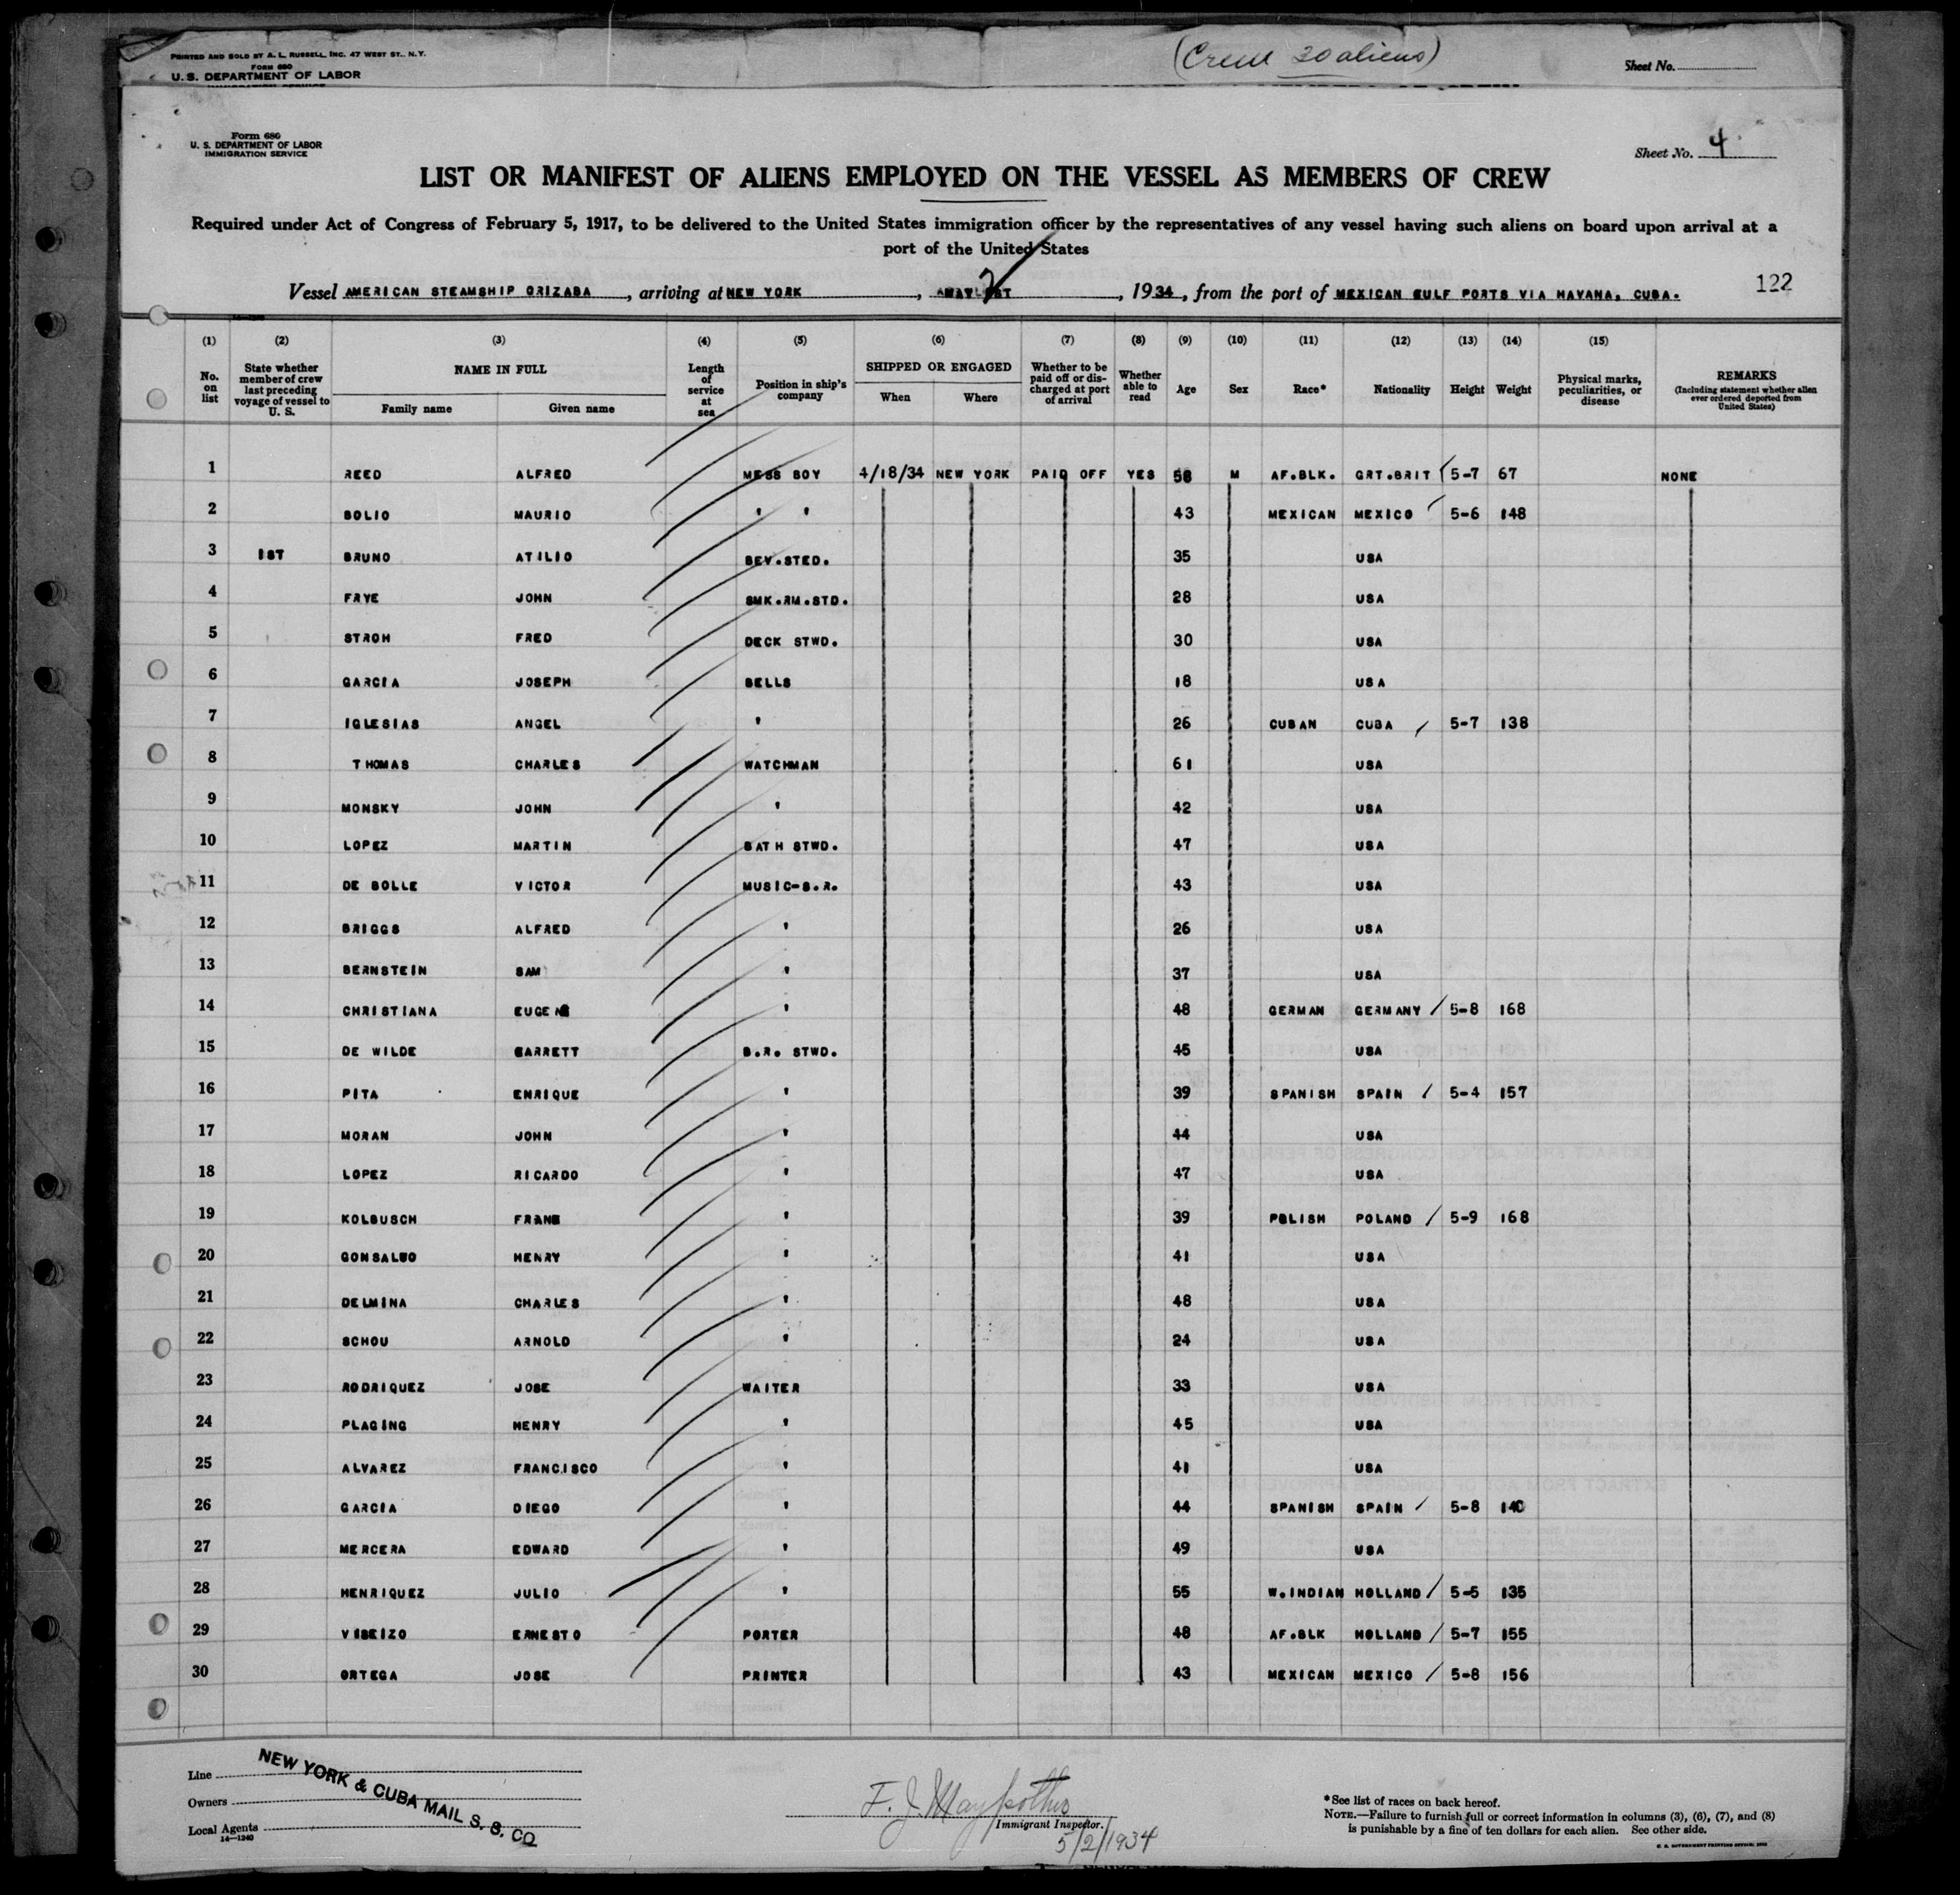 PRINTED AND SOLD BY A. L. RUSSELL, INC. 47 WEST ST., N.Y.
FORM 680
U. S. DEPARTMENT OF LABOR
(Crew 20 aliens)
Sheet No.
Form 680
U. S. DEPARTMENT OF LABOR
IMMIGRATION SERVICE
Sheet No. 4
LIST OR MANIFEST OF ALIENS EMPLOYED ON THE VESSEL AS MEMBERS OF CREW
Required under Act of Congress of February 5, 1917, to be delivered to the United States immigration officer by the representatives of any vessel having such aliens on board upon arrival at a
port of the United States
Vessel AMERICAN STEAMSHIP ORIZABA, arriving at NEW YORK, MAY 2, 1934, from the port of MEXICAN GULF PORTS VIA HAVANA, CUBA. 122
(1) (2) (3) (4) (5) (6) (7) (8) (9) (10) (11) (12) (13) (14) (15)
No. on list | State whether member of crew last preceding voyage of vessel to U. S. | NAME IN FULL Family name Given name | Length of service at sea | Position in ship's company | SHIPPED OR ENGAGED When Where | Whether to be paid off or discharged at port of arrival | Whether able to read | Age | Sex | Race* | Nationality | Height | Weight | Physical marks, peculiarities, or disease | REMARKS (Including statement whether alien ever ordered deported from United States)
1 REED ALFRED MESS BOY 4/18/34 NEW YORK PAID OFF YES 58 M AF.BLK. GRT.BRIT 5-7 67 NONE
2 BOLIO MAURIO " " 43 MEXICAN MEXICO 5-6 148
3 1ST BRUNO ATILIO BEV.STED. 35 USA
4 FRYE JOHN SMK.RM.STD. 28 USA
5 STROH FRED DECK STWD. 30 USA
6 GARCIA JOSEPH BELLS 18 USA
7 IGLESIAS ANGEL " 26 CUBAN CUBA 5-7 138
8 THOMAS CHARLES WATCHMAN 61 USA
9 MONSKY JOHN " 42 USA
10 LOPEZ MARTIN BATH STWD. 47 USA
11 DE BOLLE VICTOR MUSIC-B.R. 43 USA
12 BRIGGS ALFRED " 26 USA
13 BERNSTEIN SAM " 37 USA
14 CHRISTIANA EUGENE " 48 GERMAN GERMANY 5-8 168
15 DE WILDE GARRETT B.R. STWD. 45 USA
16 PITA ENRIQUE " 39 SPANISH SPAIN 5-4 157
17 MORAN JOHN " 44 USA
18 LOPEZ RICARDO " 47 USA
19 KOLBUSCH FRANK " 39 POLISH POLAND 5-9 168
20 GONSALVO HENRY " 41 USA
21 DELMINA CHARLES " 48 USA
22 SCHOU ARNOLD " 24 USA
23 RODRIQUEZ JOSE WAITER 33 USA
24 PLAGING HENRY " 45 USA
25 ALVAREZ FRANCISCO " 41 USA
26 GARCIA DIEGO " 44 SPANISH SPAIN 5-8 140
27 MERCERA EDWARD " 49 USA
28 HENRIQUEZ JULIO " 55 W.INDIAN HOLLAND 5-5 135
29 VISEIZO ERNESTO PORTER 48 AF.BLK HOLLAND 5-7 155
30 ORTEGA JOSE PRINTER 43 MEXICAN MEXICO 5-8 156
Line
Owners
Local Agents
14—1240
NEW YORK & CUBA MAIL S. S. CO.
Immigrant Inspector.
5/2/1934
*See list of races on back hereof.
NOTE.—Failure to furnish full or correct information in columns (3), (6), (7), and (8)
is punishable by a fine of ten dollars for each alien. See other side.